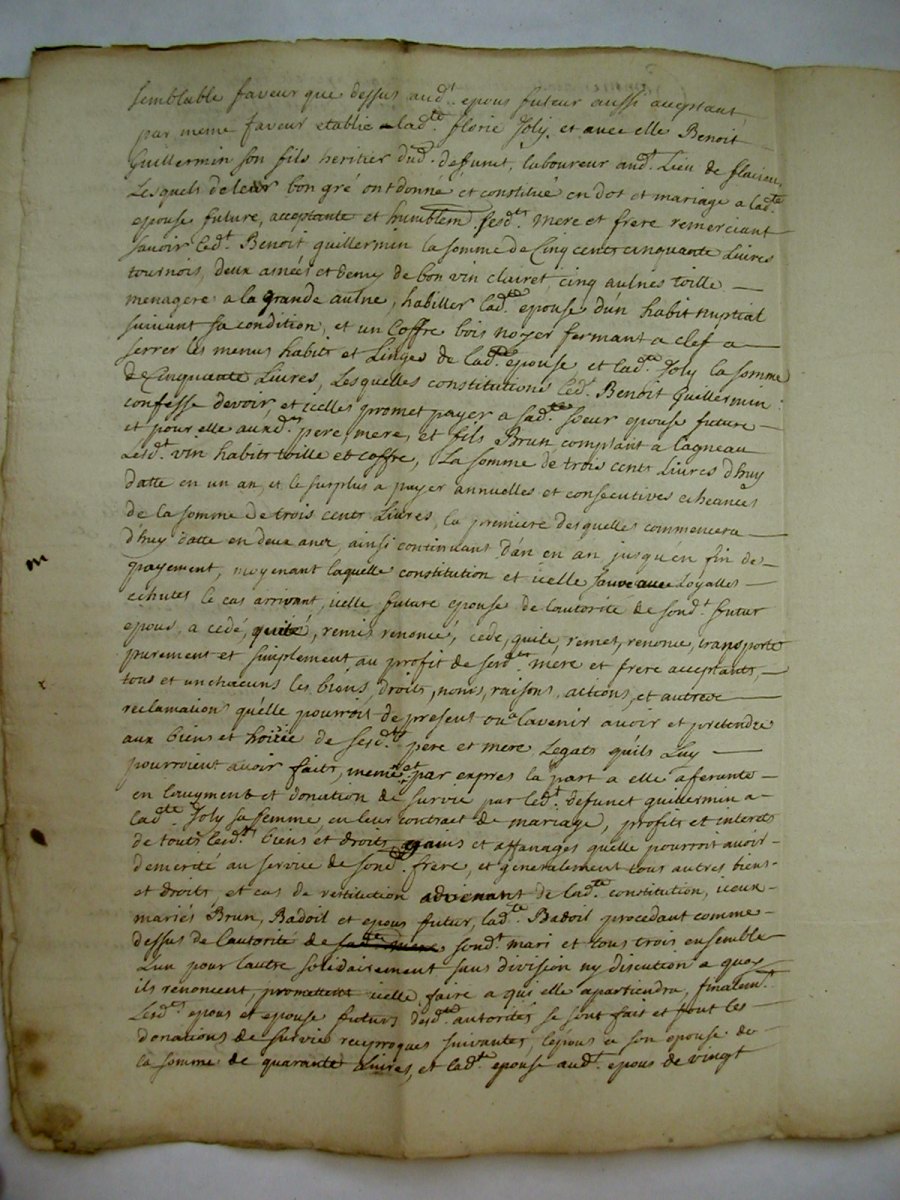 semblable faveur que dessus aud.t epous futeur aussi acceptant,
par meme faveur etablie lad.te florie Joly, et avec elle Benoit
Guillermin son fils heritier dud. defunt, laboureur aud.t Lieu de
Lesquels de leur bon gré ont donné et constitué en dot et mariage a lad.te
epouse future, acceptante et humblem.t sesd.ts mere et frere remerciant
savoir led.t Benoit guillermin la somme de Cinq cents cinquante Livres
tournois, deux asnées et demy de bon vin clairet, cinq aulnes toille
menagere a la grande aulne, habiller lad.te epouse d'un habit nuptial
suivant sa condition, et un Coffre bois noyer fermant a clef a
serrer les menus habits et Linge de lad.te epouse et lad.te Joly la somme
de Cinquante Livres, Lesquelles constitutions led.t Benoit Guillermin
confesse devoir, et icelles promet payer a sad.te soeur epouse future
et pour elle auxd.ts pere, mere, et fils Brun, comptant a Lagneau
Lesd.t vin habits toille et coffre, La somme de trois cents Livres d'huy
datte en un an, et le surplus a payer annuelles et consecutives echeances
de la somme de trois cents Livres, la premiere desquelles commencera
d'huy datte en deux ans, ainsi continuant d'an en an jusqu'en fin de
payement, moyenant laquelle constitution et icelle sauve avec Loyalles
echutes le cas arrivant, icelle future epouse de l'autorité de sond.t futur
epous, a cedé, quité, remis renoncé, cede, quite, remet, renonce, transporte
purement et simplement au profit de sesd.ts mere et frere acceptants,
tous et un chacuns les biens, droits, noms, raisons, actions, et autres
reclamations qu'elle pourroit de present ou a l'avenir avoir et pretendre
aux biens et hoirie de sesd.ts pere et mere Legats qu'ils Luy
pourroient avoir faits, meme et par expres la part a elle aferante
en l'augment et donation de survie par led.t defunt guillermin a
lad.te Joly sa femme en leur contract de mariage, profits et interets
de touts lesd.ts biens et droits, gains et affanages quelle pourroit avoir
demerité au service de sond. frere, et generalement tous autres biens
et droits, et cas de restitution advenant de lad.te constitution, iceux
mariés Brun, Badoil et epous futur, lad.te Badoil procedant comme
dessus de l'autorité de sond.t mari et tous trois ensemble
L'un pour l'autre solidairement sans division ny discution a quoy
ils renoncent promettent icelle faire a qui elle apartiendra, finalem.t
Lesd.ts epous et epouse futurs desd.tes autorités se sont fait et font les
donations de survie reciproques suivantes, l'epous a son epouse de
la somme de quarante Livres, et lad.te epouse aud.t epous de vingt